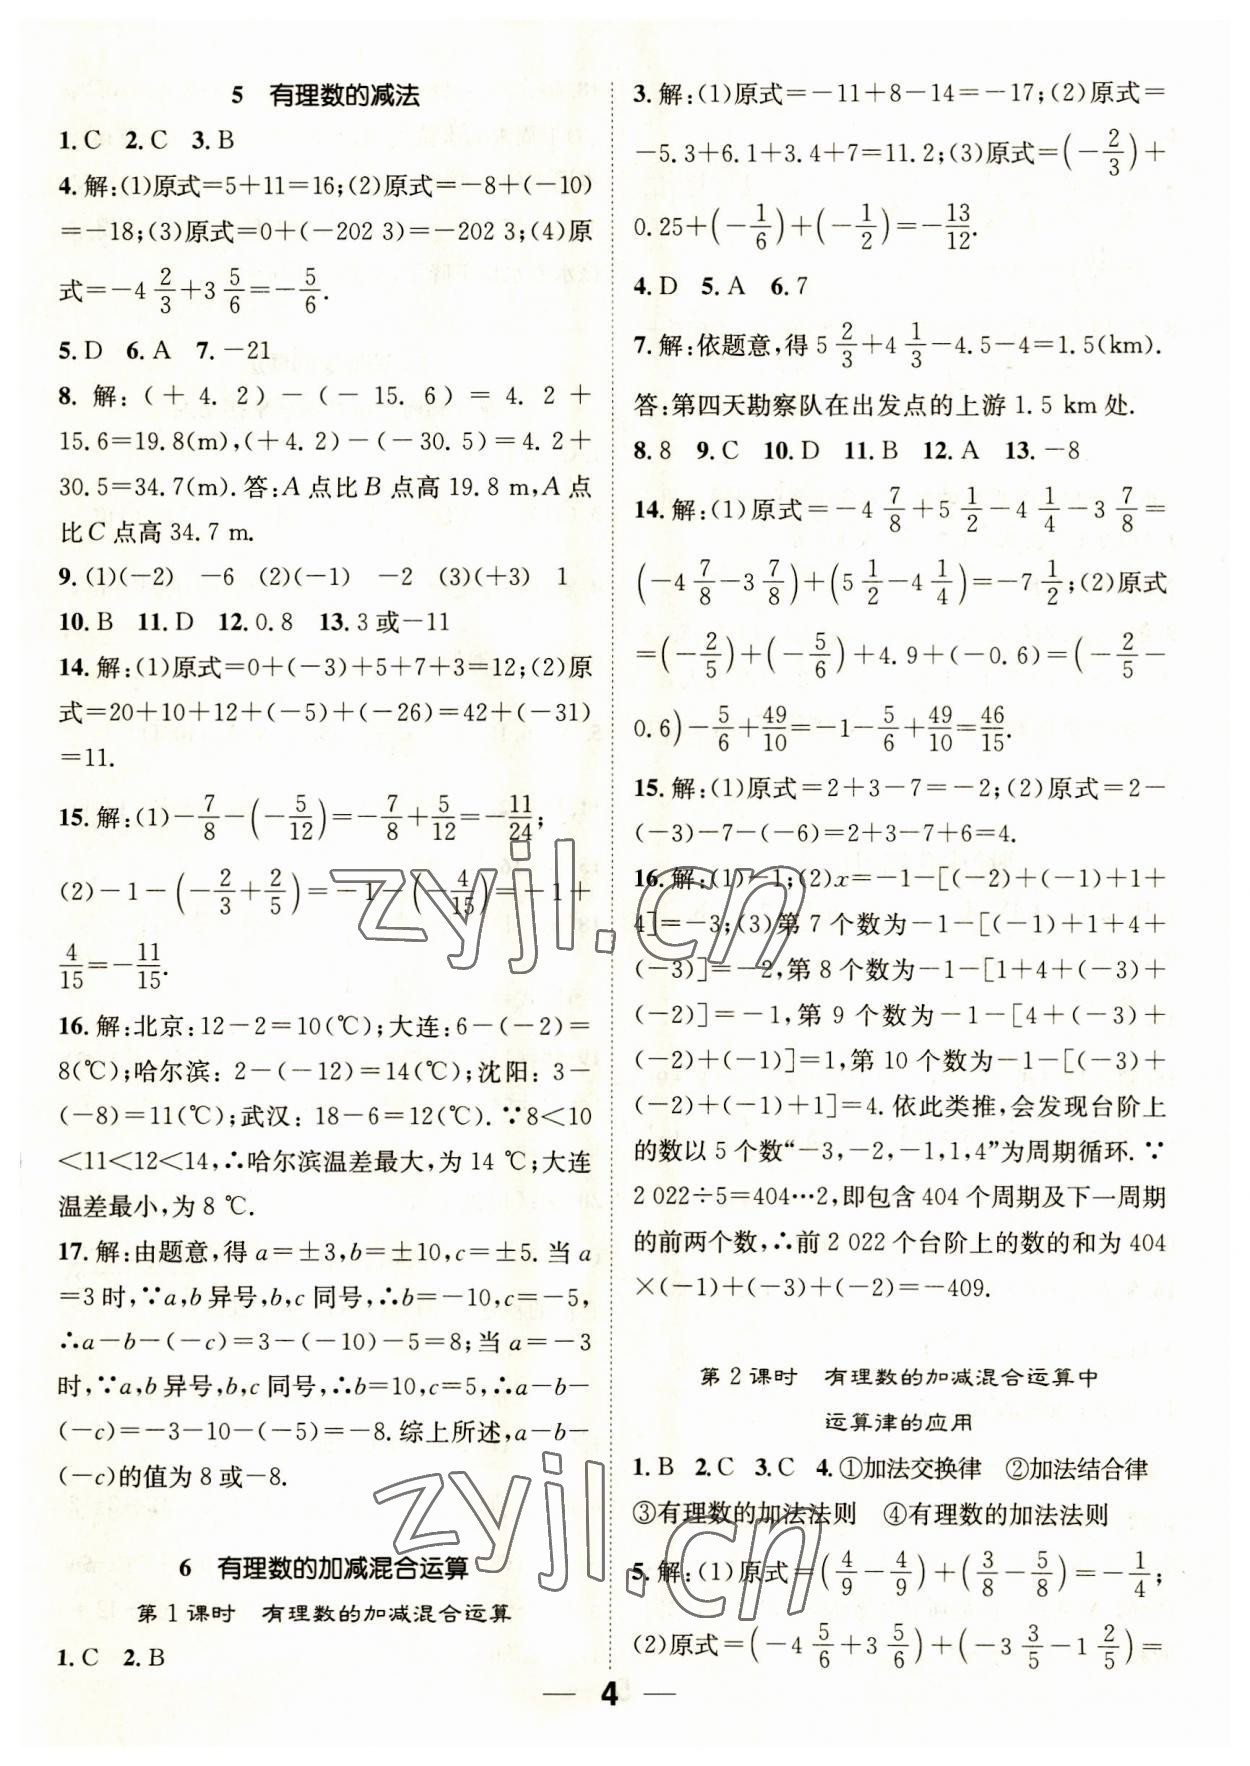 5 有理数的减法
1. C 2. C 3. B
4. 解:(1)原式=5+11=16;(2)原式=-8+(-10)
=-18;(3)原式=0+(-202 3)=-202 3;(4)原
式=-4 2/3+3 5/6=-5/6.
5. D 6. A 7. -21
8. 解:(+4.2)-(-15.6)=4.2+
15.6=19.8(m),(+4.2)-(-30.5)=4.2+
30.5=34.7(m).答:A点比B点高19.8 m,A点
比C点高34.7 m.
9. (1)(-2) -6 (2)(-1) -2 (3)(+3) 1
10. B 11. D 12. 0.8 13. 3或-11
14. 解:(1)原式=0+(-3)+5+7+3=12;(2)原
式=20+10+12+(-5)+(-26)=42+(-31)
=11.
15. 解:(1)-7/8-(-5/12)=-7/8+5/12=-11/24;
(2)-1-(-2/3+2/5)=-1-(-4/15)=-1+
4/15=-11/15.
16. 解:北京:12-2=10(℃);大连:6-(-2)=
8(℃);哈尔滨:2-(-12)=14(℃);沈阳:3-
(-8)=11(℃);武汉:18-6=12(℃).∵8<10
<11<12<14,∴哈尔滨温差最大,为14 ℃;大连
温差最小,为8 ℃.
17. 解:由题意,得a=±3,b=±10,c=±5.当a
=3时,∵a,b异号,b,c同号,∴b=-10,c=-5,
∴a-b-(-c)=3-(-10)-5=8;当a=-3
时,∵a,b异号,b,c同号,∴b=10,c=5,∴a-b-
(-c)=-3-10-(-5)=-8.综上所述,a-b-
(-c)的值为8或-8.
6 有理数的加减混合运算
第1课时 有理数的加减混合运算
1. C 2. B
3. 解:(1)原式=-11+8-14=-17;(2)原式=
-5.3+6.1+3.4+7=11.2;(3)原式=(-2/3)+
0.25+(-1/6)+(-1/2)=-13/12.
4. D 5. A 6. 7
7. 解:依题意,得5 2/3+4 1/3-4.5-4=1.5(km).
答:第四天勘察队在出发点的上游1.5 km处.
8. 8 9. C 10. D 11. B 12. A 13. -8
14. 解:(1)原式=-4 7/8+5 1/2-4 1/4-3 7/8=
(-4 7/8-3 7/8)+(5 1/2-4 1/4)=-7 1/2;(2)原式
=(-2/5)+(-5/6)+4.9+(-0.6)=(-2/5-
0.6)-5/6+49/10=-1-5/6+49/10=46/15.
15. 解:(1)原式=2+3-7=-2;(2)原式=2-
(-3)-7-(-6)=2+3-7+6=4.
16. 解:(1)-1;(2)x=-1-[(-2)+(-1)+1+
4]=-3;(3)第7个数为-1-[(-1)+1+4+
(-3)]=-2,第8个数为-1-[1+4+(-3)+
(-2)]=-1,第9个数为-1-[4+(-3)+
(-2)+(-1)]=1,第10个数为-1-[(-3)+
(-2)+(-1)+1]=4.依此类推,会发现台阶上
的数以5个数“-3,-2,-1,1,4”为周期循环.∵
2 022÷5=404…2,即包含404个周期及下一周期
的前两个数,∴前2 022个台阶上的数的和为404
×(-1)+(-3)+(-2)=-409.
第2课时 有理数的加减混合运算中
运算律的应用
1. B 2. C 3. C 4. ①加法交换律 ②加法结合律
③有理数的加法法则 ④有理数的加法法则
5. 解:(1)原式=(4/9-4/9)+(3/8-5/8)=-1/4;
(2)原式=(-4 5/6+3 5/6)+(-3 3/5-1 2/5)=
— 4 —
zyjl.cn
zyjl.cn